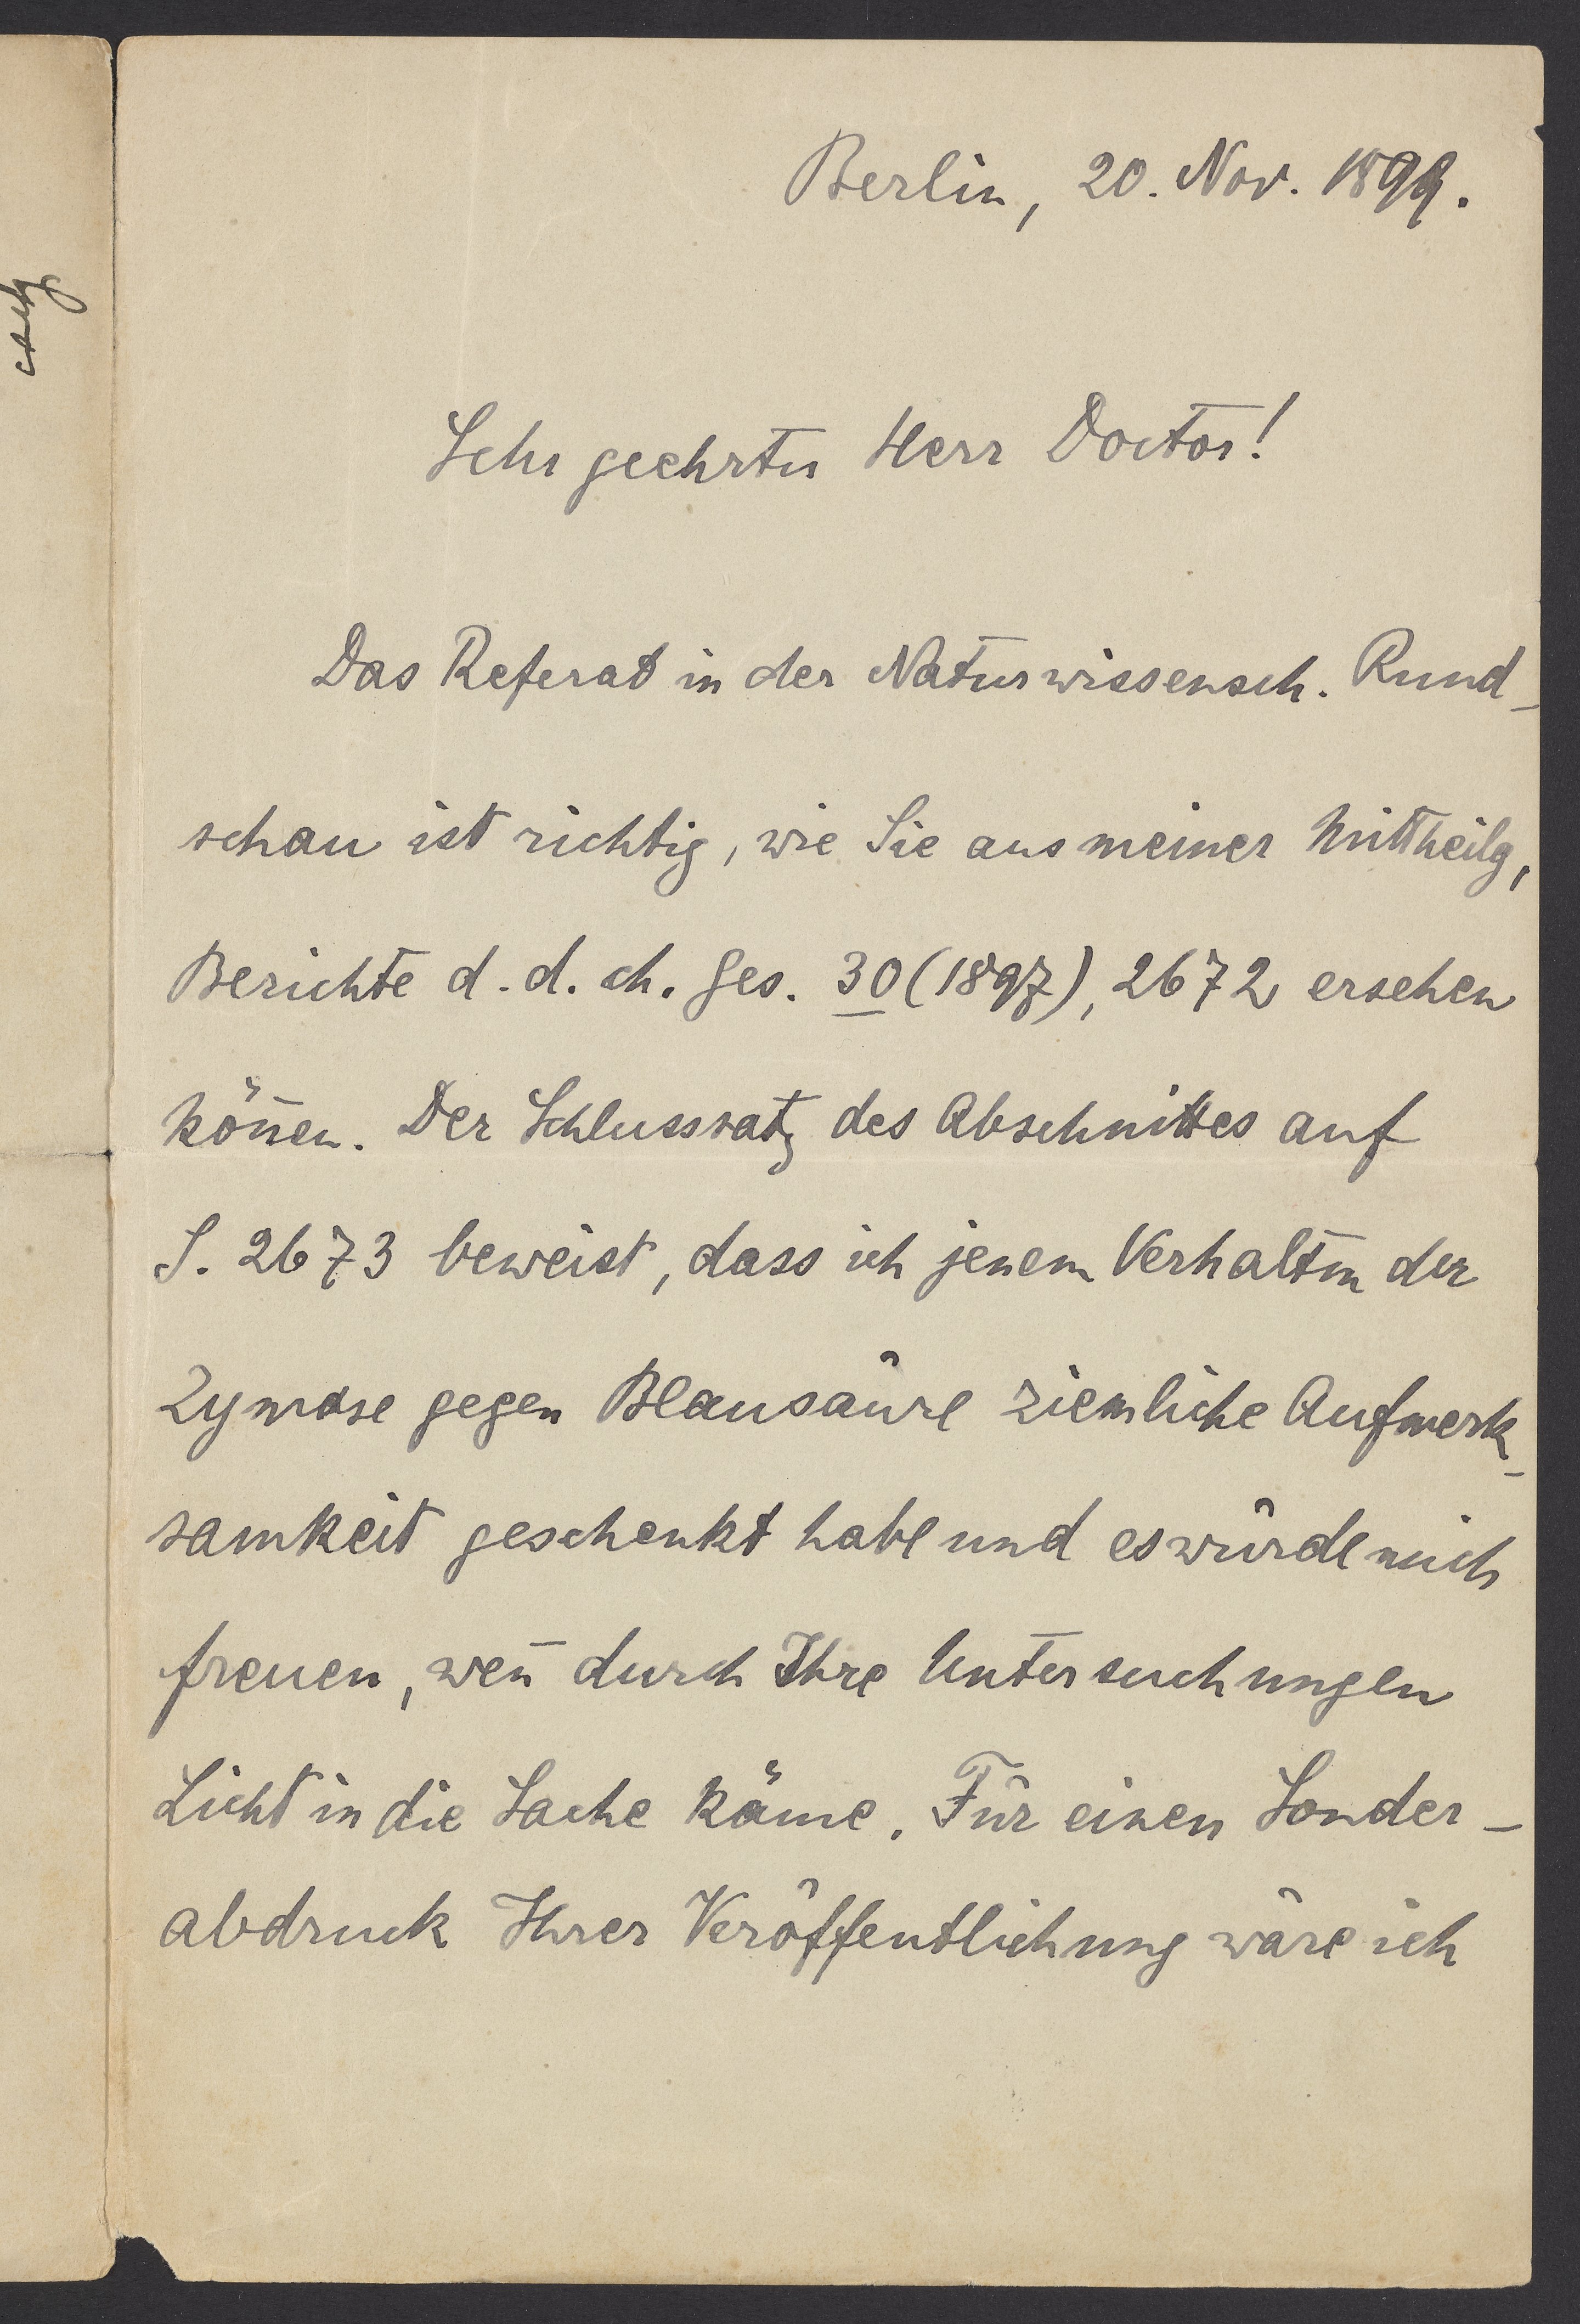 Berlin, 20. Nov. 1899.
Sehr geehrter Herr Doctor!
Das Referat in der Naturwissensch. Rund-
schau ist richtig, wie Sie aus meiner Mittheilg,
Berichte d. d. ch. Ges. 30 (1897), 2672 ersehen
kön̄en. Der Schlusssatz des Abschnittes auf
S. 2673 beweist, dass ich jenem Verhalten der
Zymase gegen Blausäure ziemliche Aufmerk-
samkeit geschenkt habe und es würde mich
freuen, wen̄ durch Ihre Untersuchungen
Licht in die Sache käme. Für einen Sonder-
abdruck Ihrer Veröffentlichung wäre ich